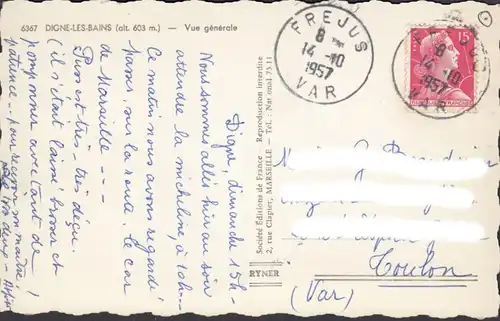 6367 DIGNE-LES-BAINS (alt. 603 m.) - Vue générale
Digne, dimanche 15h-
Nous sommes allés hier au soir
attendre la micheline à 20h-
Ce matin nous avons regardé
passer, sur la route, le car
de Marseille ---
Puss est très-très déçu.
(il s'était laissé brosser et
pomponner avec tant de
patience - pour recevoir son maître!
Société Éditions de France - Reproduction interdite
2, rue Clapier, MARSEILLE - Tél.: National 75.11
RYNER
FREJUS
8
14-10
1957
VAR
15F
FREJUS
8
14-10
1957
VAR
Toulon
(Var)